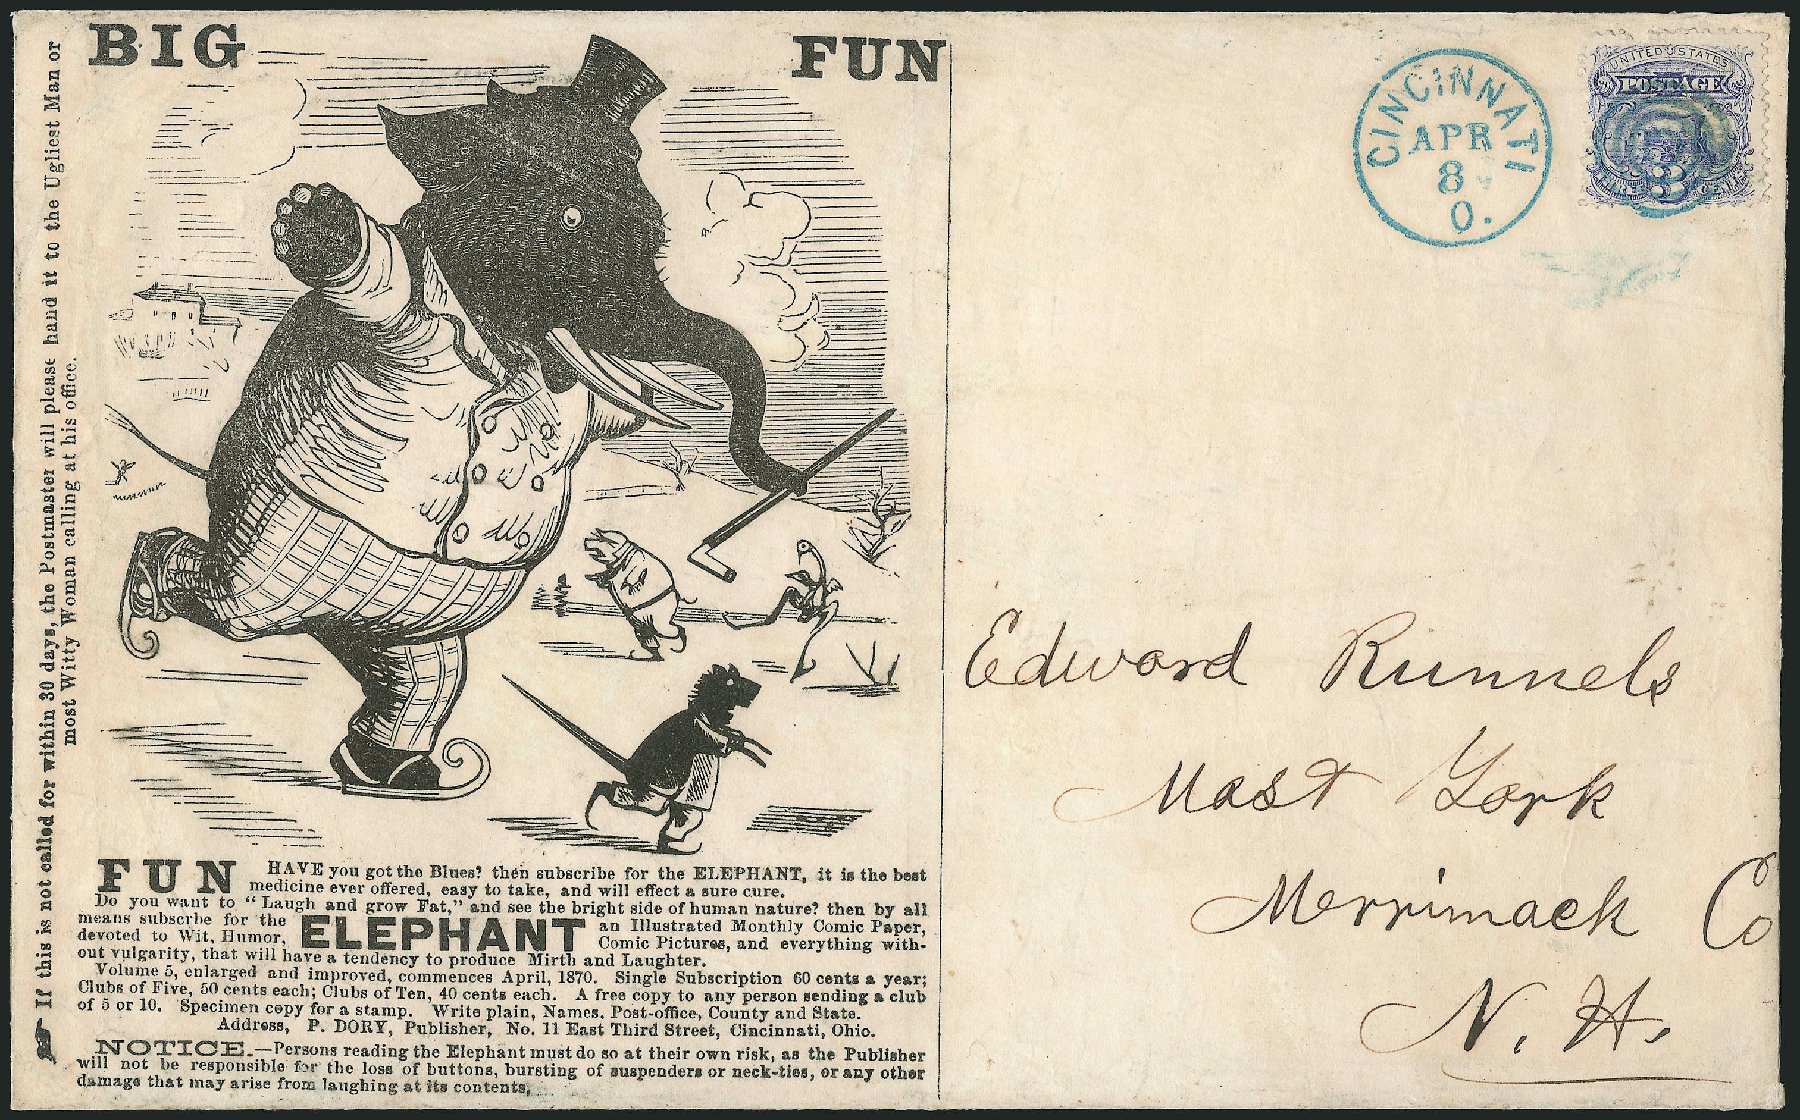 BIG FUN
If this is not called for within 30 days, the Postmaster will please hand it to the Ugliest Man or
most Witty Woman calling at his office.
FUN HAVE you got the Blues? then subscribe for the ELEPHANT, it is the best
medicine ever offered, easy to take, and will effect a sure cure.
Do you want to "Laugh and grow Fat," and see the bright side of human nature? then by all
means subscrbe for the ELEPHANT an Illustrated Monthly Comic Paper,
devoted to Wit, Humor, Comic Pictures, and everything with-
out vulgarity, that will have a tendency to produce Mirth and Laughter.
Volume 5, enlarged and improved, commences April, 1870. Single Subscription 60 cents a year;
Clubs of Five, 50 cents each; Clubs of Ten, 40 cents each. A free copy to any person sending a club
of 5 or 10. Specimen copy for a stamp. Write plain, Names. Post-office, County and State.
Address, P. DORY, Publisher, No. 11 East Third Street, Cincinnati, Ohio.
NOTICE.—Persons reading the Elephant must do so at their own risk, as the Publisher
will not be responsible for the loss of buttons, bursting of suspenders or neck-ties, or any other
damage that may arise from laughing at its contents.
CINCINNATI
APR
8
O.
UNITED STATES
POSTAGE
3
Edward Runnels
Mast York
Merrimack Co
N. H.